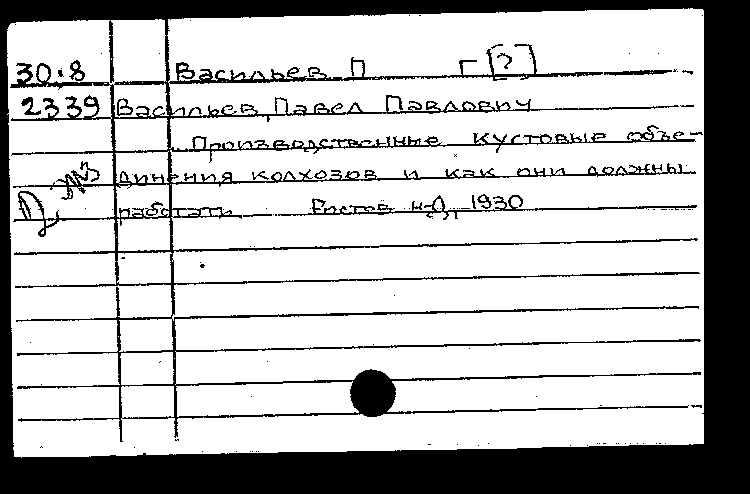 30-8 Васильев П Г [?]
2339 Васильев, Павел Павлович
Производственные кустовые объе-
динения колхозов и как они должны
работать Ростов н-Д, 1930